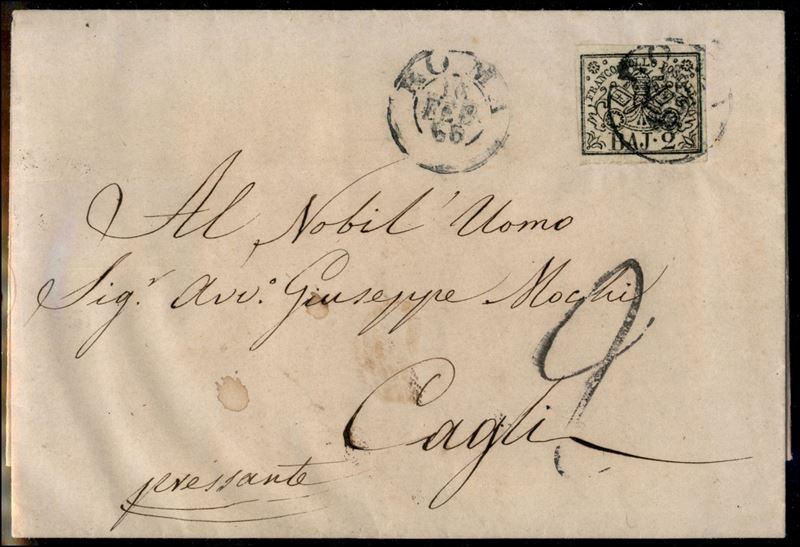 ROMA
18
FEB
66
FRANCO BOLLO POSTALE
BAJ·2
Al Nobil' Uomo
Sig.r Avv.o Giuseppe Mochi
2
Cagli
pressante